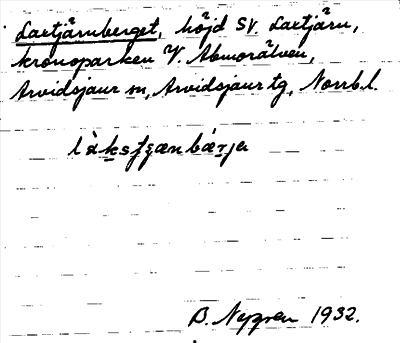 Laxtjärnberget, höjd SV. Laxtjärn,
kronoparken V. Abmorälven,
Arvidsjaur sn, Arvidsjaur tg, Norrb.l.
B. Nygren 1932.